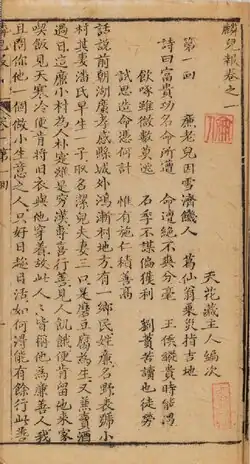 麟兒報卷之一
天花藏主人編次
第一回 廉老兒因雪濟饑人 葛仙翁乘災指吉地
詩曰富貴功名命所遭 命遭絕不爽分毫 王侯
飲啄雖微數莫逃 石季不謀偏獲利 劉蕡苦讀也徒勞
試思造命憑何計 惟有施仁積善高
話說前朝湖廣孝感縣城外鴻漸村地方有一鄉民姓廉名野表號小
村其妻潘氏早生一子取名潔兒夫妻三口只是磨豆腐為生又兼賣酒
過日這廉小村為人朴實雖是窮漢專喜行善見人飢餓便肯留他來家
喫飯見天寒冷便肯將舊衣與他穿着故此人人皆稱他為廉善人我
且問你他一個做小生意之人只好日趁日活如何得能有餘行此善